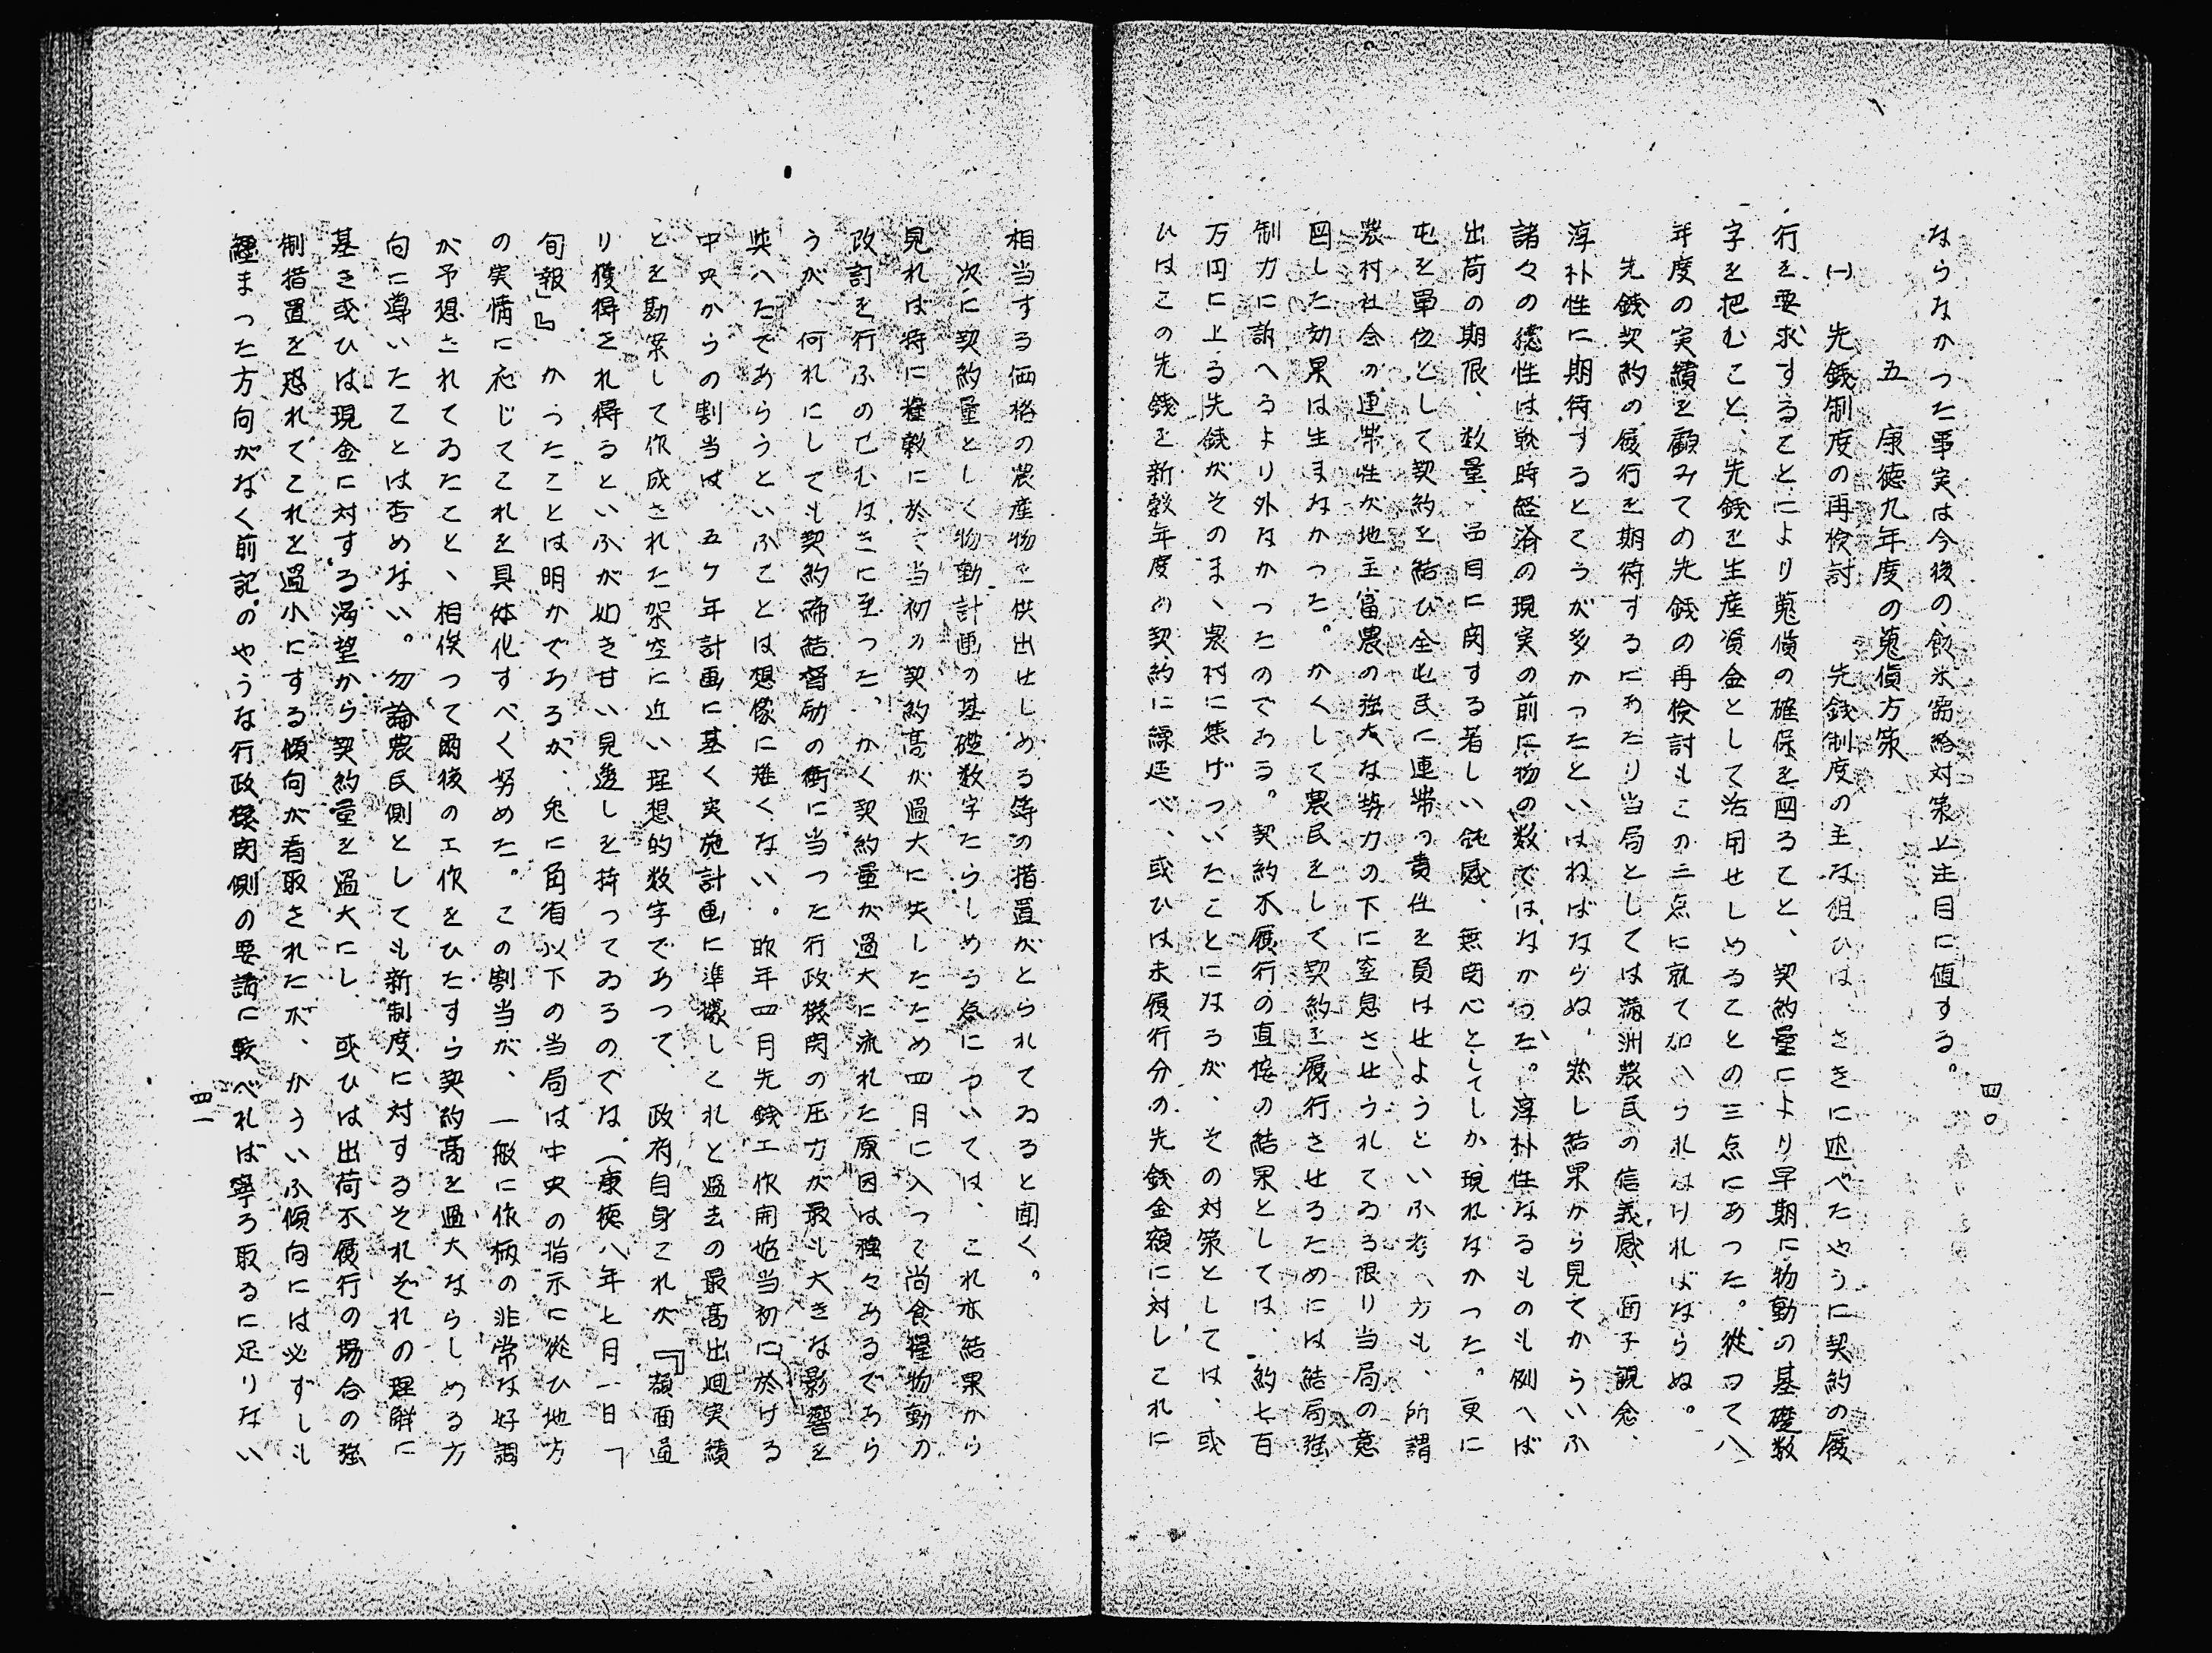 四〇
ならなかつた事実は今後の飯米需給対策上注目に値する。
五　康徳九年度の蒐貨方策
(一)　先銭制度の再検討　先銭制度の主な狙ひは、さきに述べたやうに契約の履
行を要求することにより蒐貨の確保を図ること、契約量により早期に物動の基礎数
字を把むこと、先銭を生産資金として活用せしめることの三点にあつた。従つて八
年度の実績を顧みての先銭の再検討もこの三点に就て加へられなければならぬ。
先銭契約の履行を期待するにあたり当局としては満洲農民の信義感、面子観念、
淳朴性に期待するところが多かつたといはねばならぬ、然し結果から見てからいふ
諸々の徳性は戦時経済の現実の前に物の数ではなかつた。淳朴性なるものも例へば
出荷の期限、数量、品目に関する著しい鈍感、無関心としてしか現れなかつた。更に
屯を単位として契約を結び全屯民に連帯の責任を負はせようといふ考へ方も、所謂
農村社会の連帯性が地主富農の強大な勢力の下に窒息させられてゐる限り当局の意
図した効果は生まなかつた。かくして農民をして契約を履行させるためには結局強
制力に訴へるより外なかつたのである。契約不履行の直接の結果としては、約七百
万円に上る先銭がそのまゝ農村に焦げついたことになるが、その対策としては、或
ひはこの先銭を新穀年度の契約に繰延べ、或ひは未履行分の先銭金額に対しこれに
相当する価格の農産物を供出せしめる等の措置がとられてゐると聞く。
次に契約量としく物動計画の基礎数字たらしめる点については、これ亦結果から
見れは特に糧穀に於て当初の契約高が過大に失したため四月に入つて尚食糧物動の
改訂を行ふの已むなきに至つた。かく契約量が過大に流れた原因は種々あるであら
うが、何れにしても契約締結督励の衝に当つた行政機関の圧力が最も大きな影響を
与へたであらうといふことは想像に難くない。昨年四月先銭工作開始当初に於ける
中央からの割当は、五ケ年計画に基く実施計画に準拠しこれと過去の最高出廻実績
とを勘案して作成された架空に近い理想的数字であつて、政府自身これが『額面通
り獲得され得るといふが如き甘い見透しを持つてゐるのでは（康徳八年七月一日「
旬報」』かつたことは明かであるが、兎に角省以下の当局は中央の指示に従ひ地方
の実情に応じてこれを具体化すべく努めた。この割当が、一般に作柄の非常な好調
が予想されてゐたこと、相俟つて爾後の工作をひたすら契約高を過大ならしめる方
向に導いたことは否めない。勿論農民側としても新制度に対するそれぞれの理解に
基き或ひは現金に対する渇望から契約量を過大にし、或ひは出荷不履行の場合の強
制措置を恐れてこれを過小にする傾向が看取されたが、かういふ傾向には必ずしも
纒まつた方向がなく前記のやうな行政機関側の要請に較べれば寧ろ取るに足りない
四一